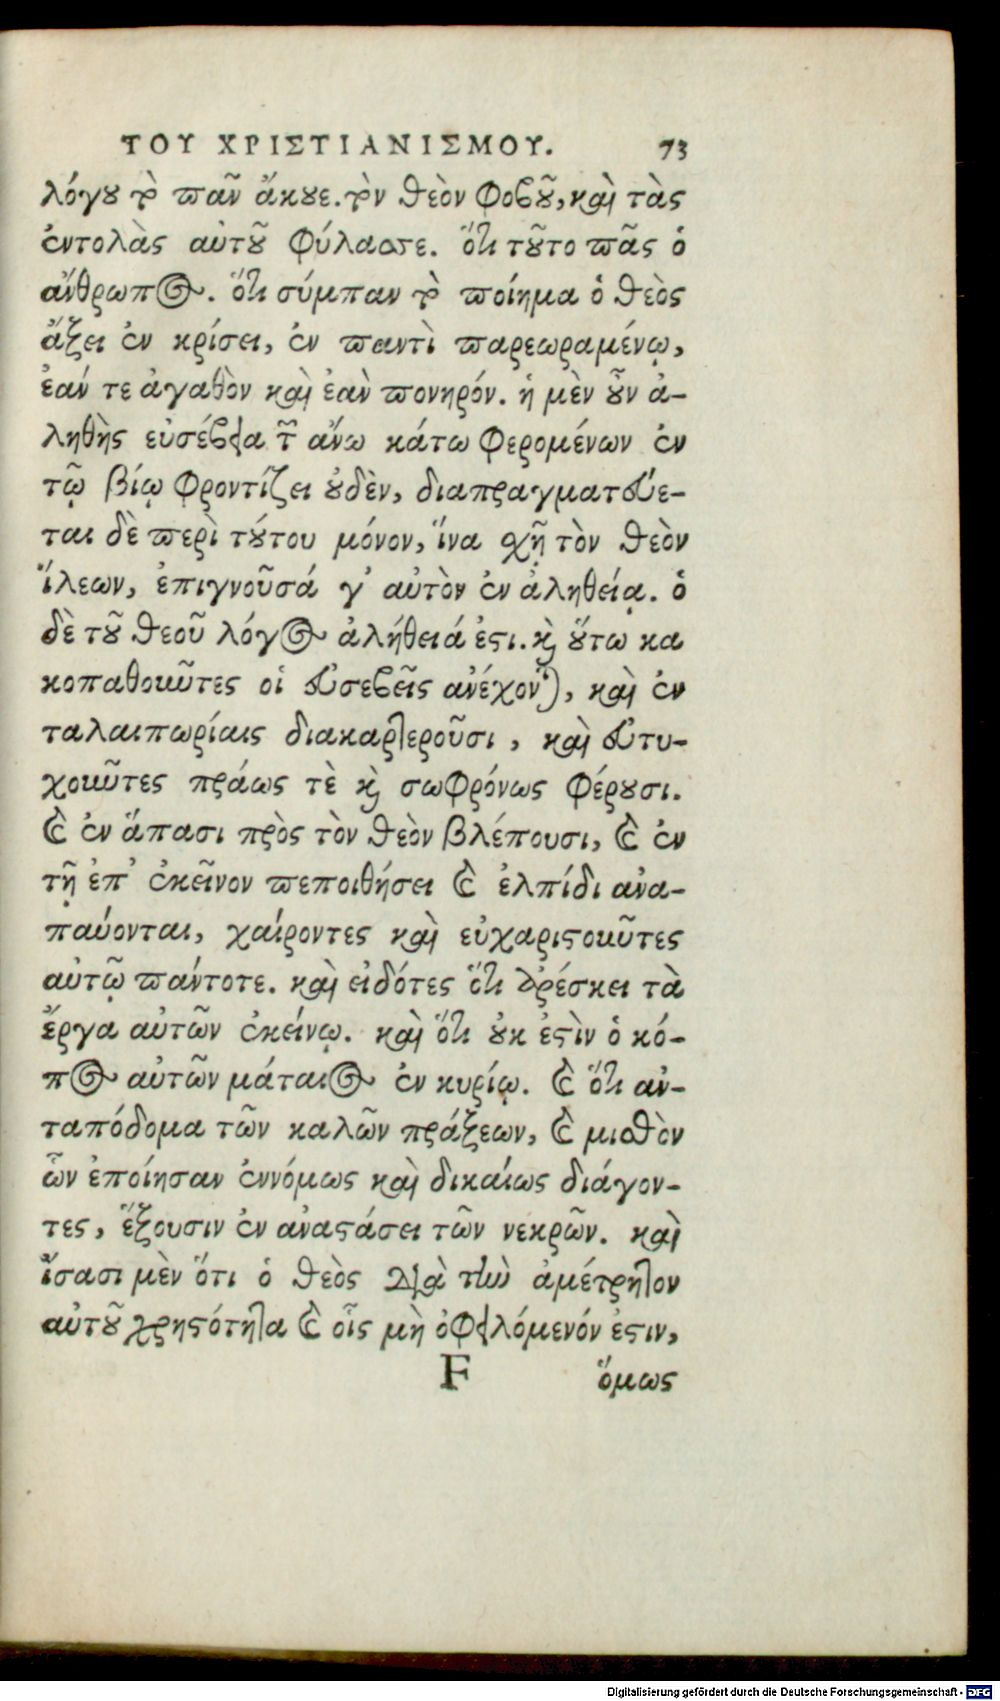 ΤΟΥ ΧΡΙΣΤΙΑΝΙΣΜΟΥ. 73
λόγȣ τὸ ϖᾶν ἄκȣε. τὸν θεὸν φοβȣ͂, καὶ τὰς
ἐντολὰς αὐτȣ͂ φύλασσε. ὅτι τȣ͂το ϖᾶς ὁ
ἄνθρωπος. ὅτι σύμπαν τὸ ϖοίημα ὁ θεὸς
ἄξει ἐν κρίσει, ἐν ϖαντὶ ϖαρεωραμένῳ,
ἐάν τε ἀγαθὸν καὶ ἐὰν ϖονηρόν. ἡ μὲν ȣ͂̓ν ἀ-
ληθὴς εὐσέβεια τῶν ἄνω κάτω φερομένων ἐν
τῷ βίῳ φροντίζει ȣ̓δὲν, διαπραγματεύε-
ται δὲ ϖερὶ τȣ́του μόνον, ἵνα χῇ τὸν θεὸν
ἵλεων, ἐπιγνοῦσά γ' αὐτὸν ἐν ἀληθείᾳ. ὁ
δὲ τȣ͂ θεοῦ λόγος ἀλήθειά ἐϛι. καὶ ȣ̔́τω κα
κοπαθοιῶτες οἱ εὐσεβεῖς ἀνέχονται, καὶ ἐν
ταλαιπωρίαις διακαρτεροῦσι, καὶ εὐτυ-
χοιῶτες πράως τὲ καὶ σωφρόνως φέρȣσι.
καὶ ἐν ἅπασι πρὸς τὸν θεὸν βλέπουσι, καὶ ἐν
τῇ ἐπ' ἐκεῖνον ϖεποιθήσει καὶ ἐλπίδι ἀνα-
παύονται, χαίροντες καὶ εὐχαριϛοιῶτες
αὐτῷ ϖάντοτε. καὶ εἰδότες ὅτι ἀρέσκει τὰ
ἔργα αὐτῶν ἐκείνῳ. καὶ ὅτι ȣ̓κ ἐϛὶν ὁ κό-
πος αὐτῶν μάταιος ἐν κυρίῳ. καὶ ὅτι ἀν-
ταπόδομα τῶν καλῶν πράξεων, καὶ μισθὸν
ὧν ἐποίησαν ἐννόμως καὶ δικαίως διάγον-
τες, ἕξουσιν ἐν ἀναϛάσει τῶν νεκρῶν. καὶ
ἴσασι μὲν ὅτι ὁ θεὸς διὰ τὴν ἀμέτρητον
αὐτȣ͂ χρηϛότητα καὶ οἷς μὴ ὀφειλόμενόν ἐϛιν,
F ὅμως
Digitalisierung gefördert durch die Deutsche Forschungsgemeinschaft - DFG